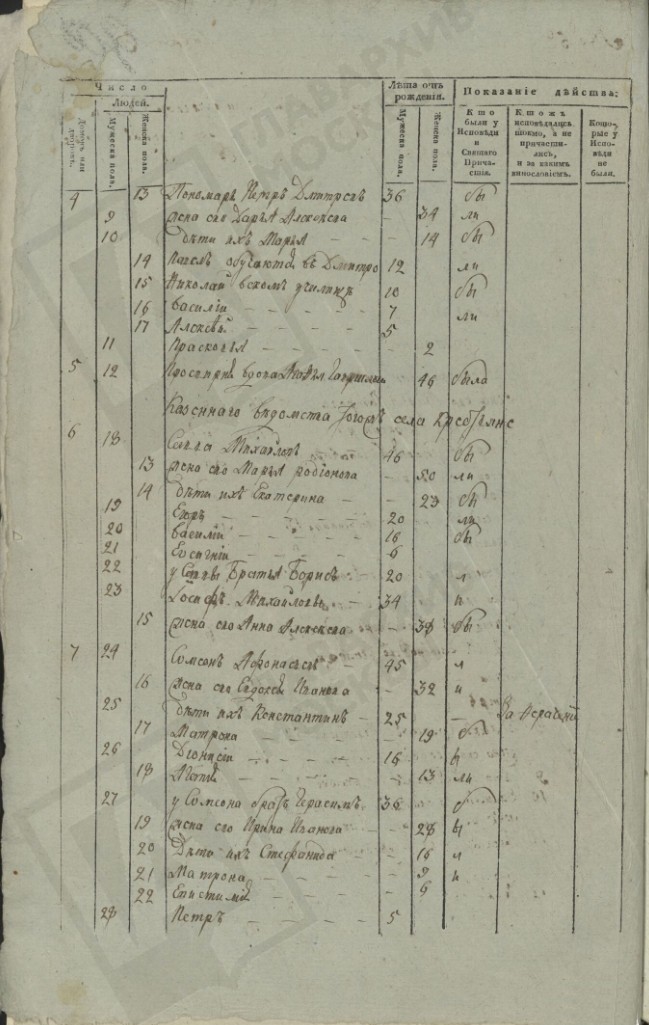 Число
Людей.
Лѣта отъ рожденія.
Показаніе дѣйства:
Мужеска пола.
Женска пола.
Мужеска пола.
Женска пола.
Кто были у Исповѣди и Святаго Причастія.
исповѣдался токмо, а не причастились, и за какимъ винословіемъ.
Которые у Исповѣди не были.
4 13 Пономарь Петръ Дмитревъ 36 бы
9 жена его Дарья Алексеева - 34 ли
10 дѣти ихъ Марья - - 14 бы
14 Павелъ обучаются въ Дмитро 12 ли
15 Николай вскомъ училищѣ 10 бы
16 Василій - - - - 7 ли
17 Алексѣй - - - - 5
11 Прасковья - - - - 2
5 12 вдова 46 была
Казеннаго вѣдомства села крестьяне
6 18 Савва Михайловъ 46 бы
13 жена его Марья Родіонова - 50 ли
14 дѣти ихъ Екатерина - - 23 бы
19 Егоръ - - - - 20 ли
20 Василій - - - - 16 бы
21 Евсигній - - - - 6
22 у Саввы Братья Борисъ - 20 л
23 Іосифъ Михайловы - 34 и
15 жена его Анна Алексеева - 38 бы
7 24 Самсонъ Афонасьевъ 45 л
16 жена его Евдокія Иванова - 32 и
25 дѣти ихъ Константинъ - 25 -
17 Матрона - - - - 19 б
26 Діонисій - - - - 16 ы
18 - - - - 13 ли
27 у Самсона братъ Герасимъ 36 б
19 жена его Ирина Иванова - - 28 ы
20 Дѣти ихъ Стефанида - - 16 л
21 Матрона - - - - 9 и
22 Епистимія - - - - 6
28 Петръ - - - - 5